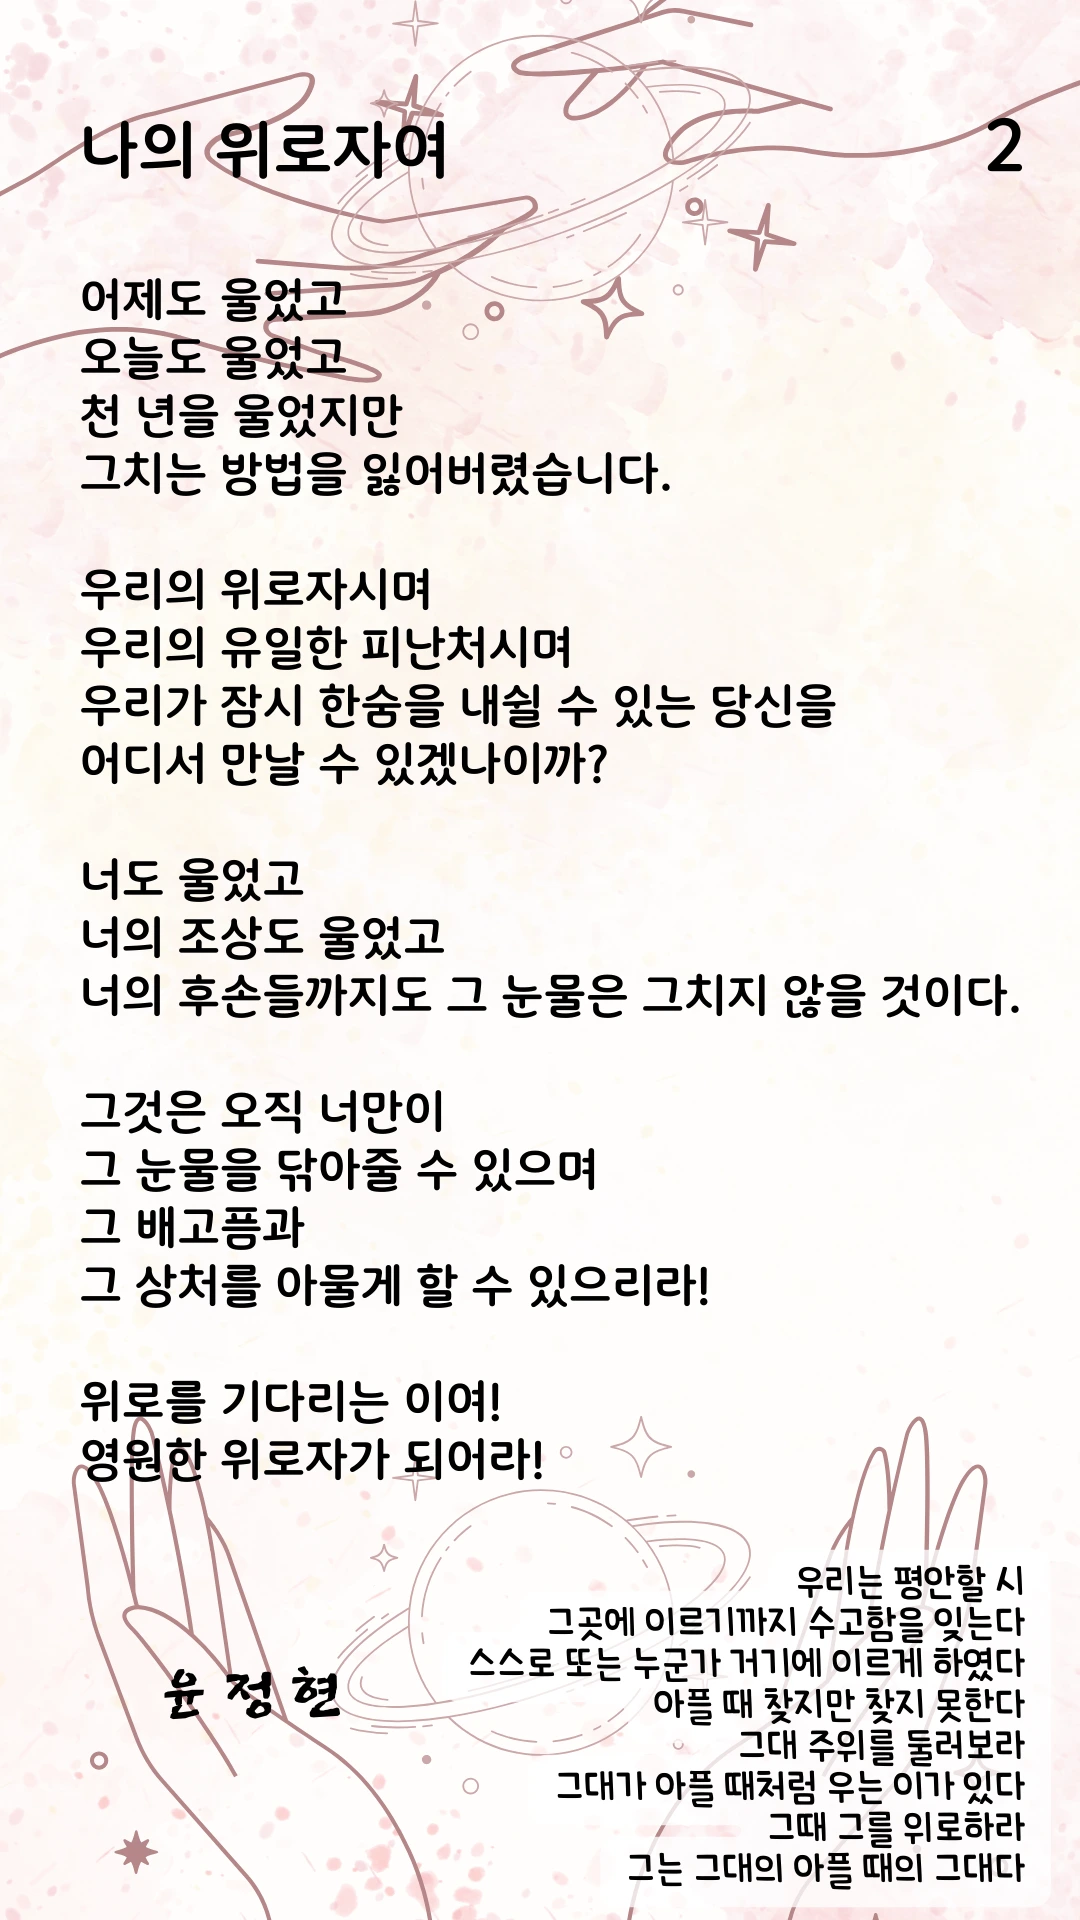 나의 위로자여
2
어제도 울었고
오늘도 울었고
천 년을 울었지만
그치는 방법을 잃어버렸습니다.
우리의 위로자시며
우리의 유일한 피난처시며
우리가 잠시 한숨을 내쉴 수 있는 당신을
어디서 만날 수 있겠나이까?
너도 울었고
너의 조상도 울었고
너의 후손들까지도 그 눈물은 그치지 않을 것이다.
그것은 오직 너만이
그 눈물을 닦아줄 수 있으며
그 배고픔과
그 상처를 아물게 할 수 있으리라!
위로를 기다리는 이여!
영원한 위로자가 되어라!
우리는 평안할 시
그곳에 이르기까지 수고함을 잊는다
스스로 또는 누군가 거기에 이르게 하였다
아플 때 찾지만 찾지 못한다
그대 주위를 둘러보라
그대가 아플 때처럼 우는 이가 있다
그때 그를 위로하라
그는 그대의 아플 때의 그대다
윤 정 현